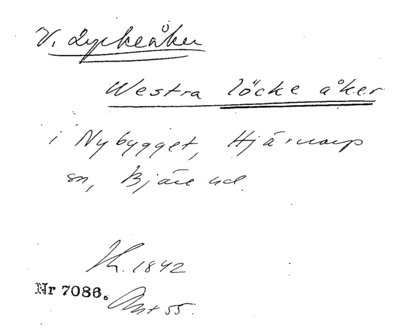 V. Lyckeåker
Westra löcke åker
i Nybygget, Hjärnarp
sn, Bjäre hd.
1842
Nr 7086.
55.